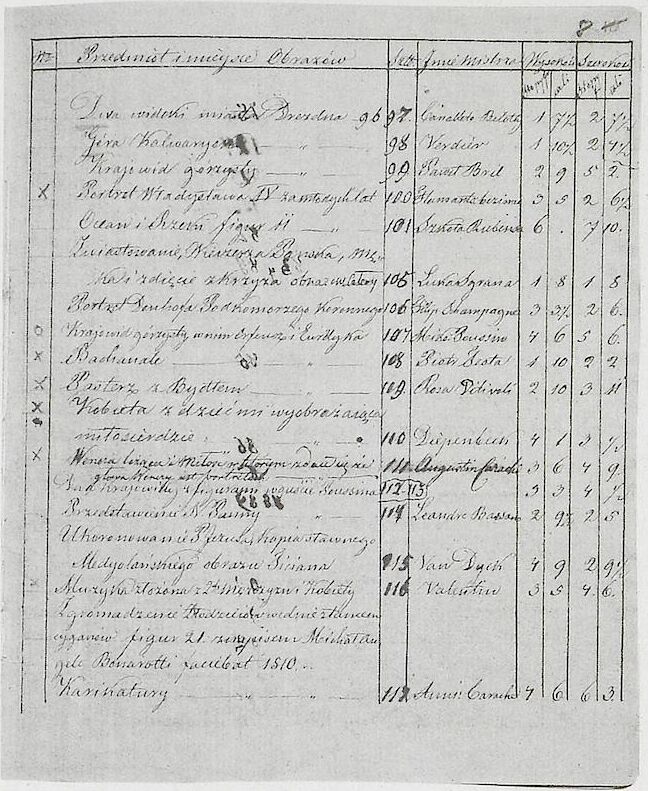 Przedmiot i miejsce Obrazów Imie Mistrza Wysokość Szerokość
Dwa widoki miasta Drezna 96 97. Canaletto Belotty 1 7½ 2 7½
Góra Kalwaryi „ 98 Verdier 1 10½ 2 7½
Krajowid górzysty „ 99 Pawet Bril 2 9 5 2
x Portret Władysława IV za młodych lat 100 3 5 2 6½
Ocean i Rzeki figur 11 „ 101 Szkoła Rubensa 6 . 7 10.
Zwiastowanie, Wieczerza Pańska, Mę„
ka i zdięcie z krzyża obraz 105 Lukas Grana 1 8 1 8
Portret Denhofa Podkomorzego Koronnego 106 Filip Champagne 3 3½ 2 6.
o Krajowid górzysty w nim Orfeusz i Eurydyka 107 Miko. Poussin 4 6 5 6.
x Bachanale „ 108 Piotr Testa 1 10 2 2
x Pasterz z Bydłem „ 109 Rosa Ditivoli 2 10 3 11
x Kobieta z dziećmi wyobrażaiąca
miłosierdzie „ 110 Diepenbeck 4 1 3 ½
x Wenera leżąca i Miłość o którym zdaie się że 111 Augustin Carachi 3 6 4 9.
głowa Wenery jest portretem
Dwa Krajowidy z figurami Poussina 112-113 3 3 4 ½
Przedstawienie N. Panny „ 114 Leandre Bassan 2 9½ 2 5
Ukoronowanie Pſezusa, Kopia sławnego
Medyolańskiego obrazu Ticiana 115 Van Dyck 4 9 2 9½
Muzyka złożona z 2ch Mężczyzn i Kobiety 116 Valentin 3 5 4. 6.
Zgromadzenie Złodzieiów
cyganów figur 21. z napisem Michał An
gelo Bonarotti facibat 1510 „
Karikatury „ 117 Annib. Carache 4 6 6 3.